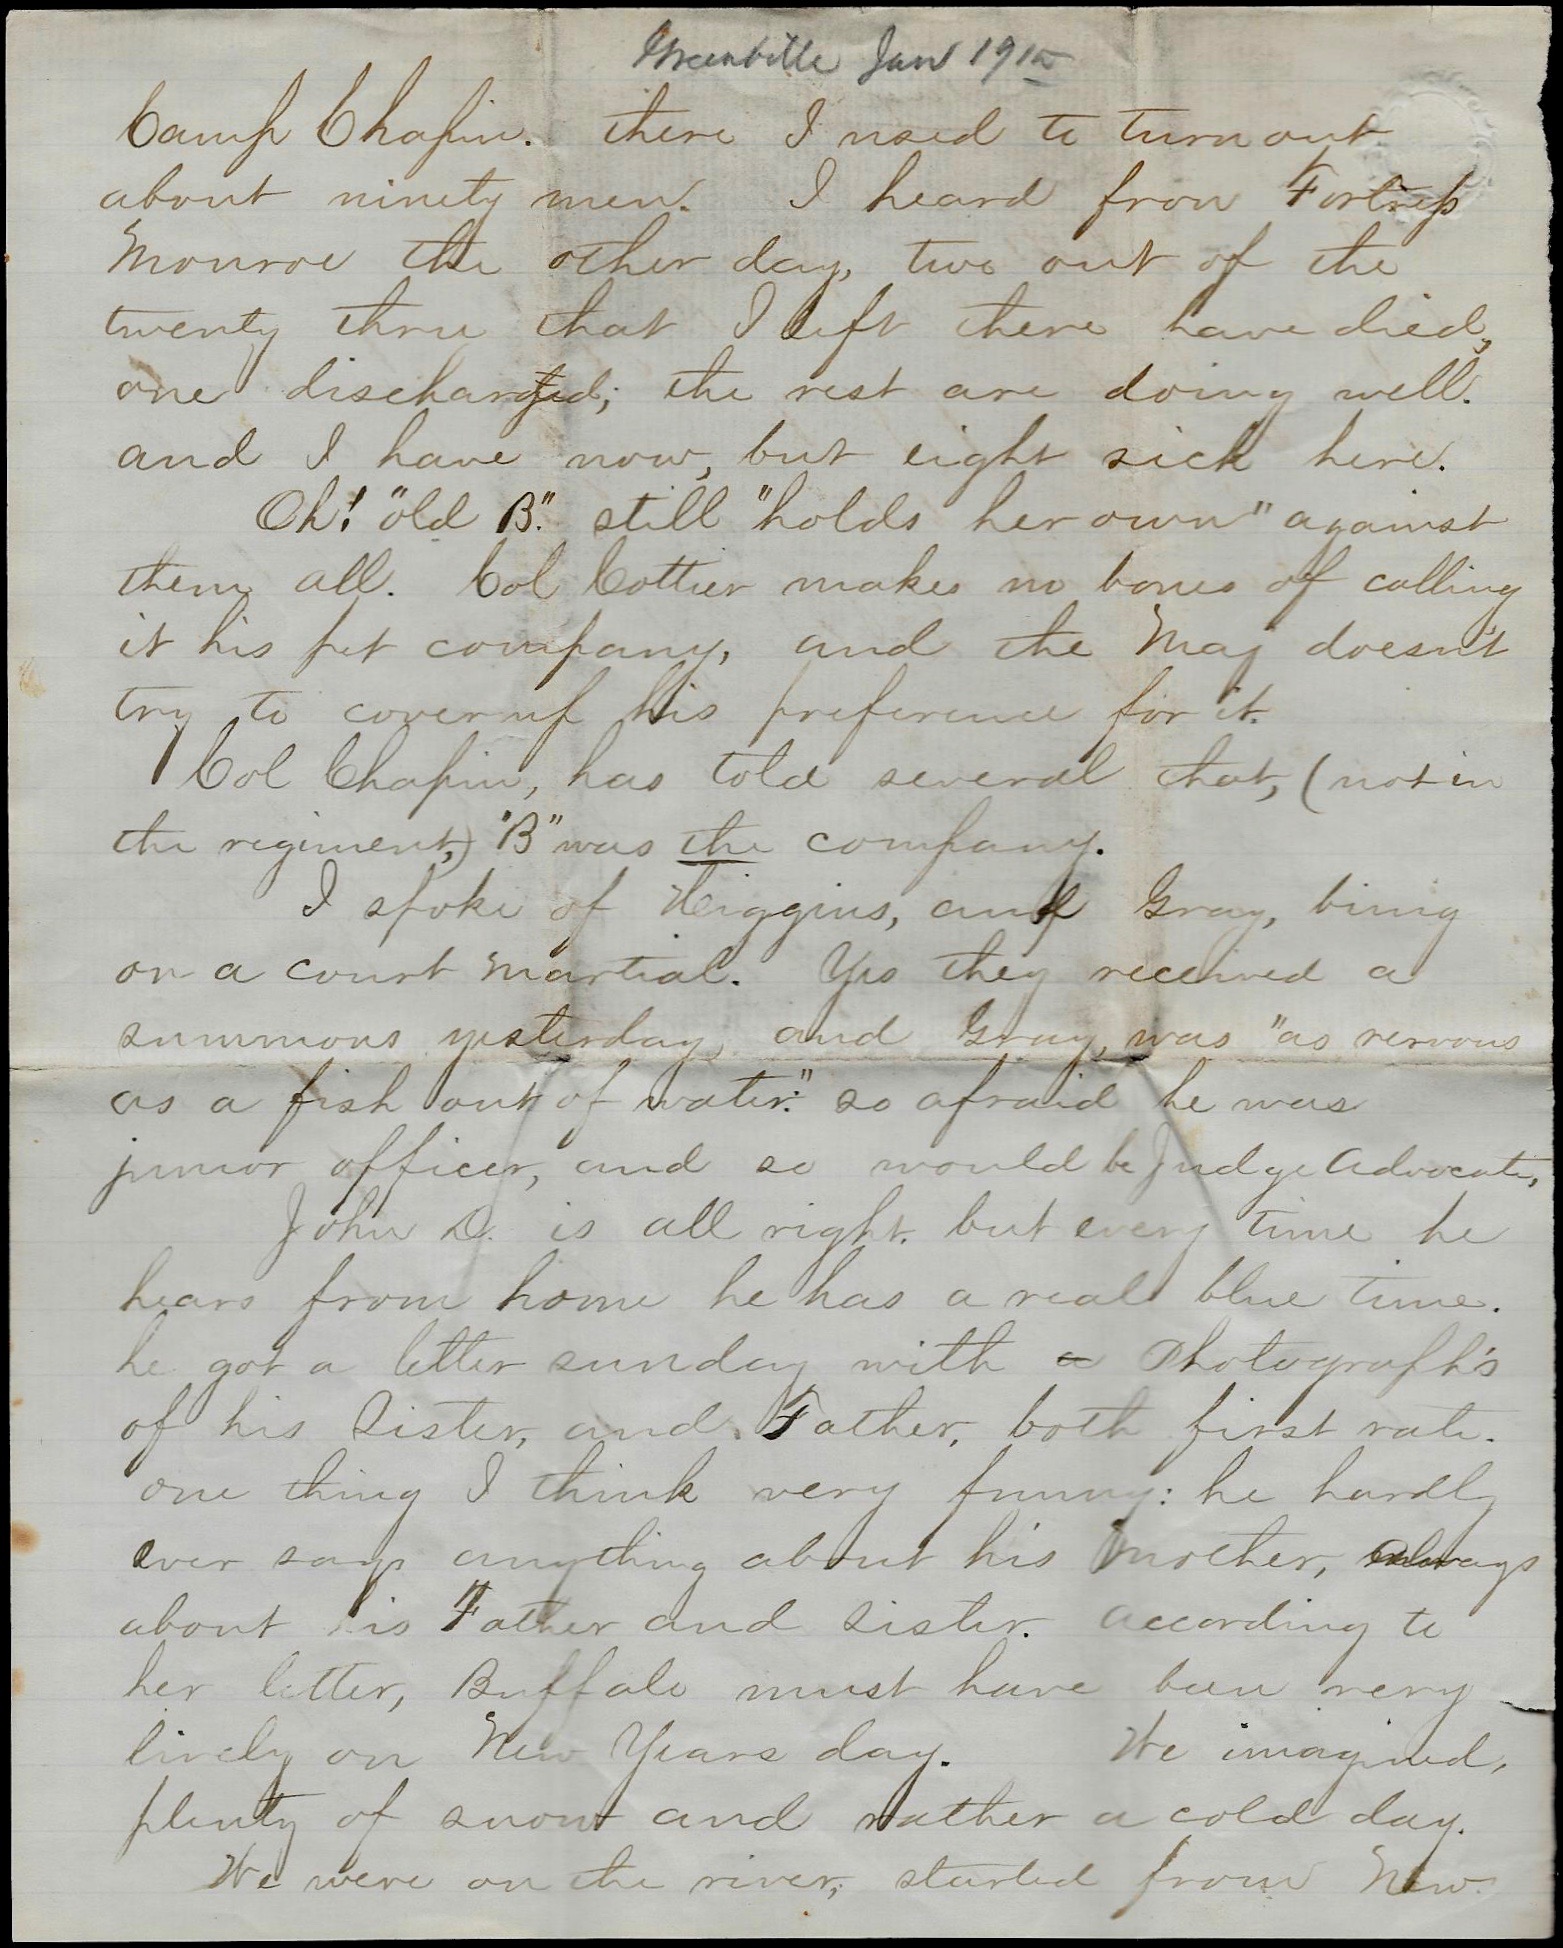 Greenville Jan 19th
Camp Chapin. there I used to turn out
about ninety men. I heard from Fortress
Monroe the other day, two out of the
twenty three that I left there have died,
one discharged; the rest are doing well.
and I have now, but eight sick here.
Oh! "old B." still "holds her own" against
them all. Col Cottier makes no bones of calling
it his pet company, and the Maj doesn't
try to cover up his preference for it.
Col Chapin, has told several that, (not in
the regiment,) "B" was the company.
I spoke of Higgins, and Gray, being
on a court martial. Yes they received a
summons yesterday, and Gray, was "as nervous
as a fish out of water." so afraid he was
junior officer, and so would be Judge Advocate,
John D. is all right. but every time he
hears from home he has a real blue time.
he got a letter sunday with a Photograph's
of his Sister, and Father, both first rate.
one thing I think very funny: he hardly
ever says anything about his Mother, always
about his Father and Sister. according to
her letter, Buffalo must have been very
lively on New Years day. We imagined,
plenty of snow and rather a cold day.
We were on the river, started from New